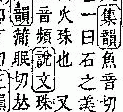 集韻魚音切
一曰石之美
火珠也又
音頻說文珠
韻蒲眠切